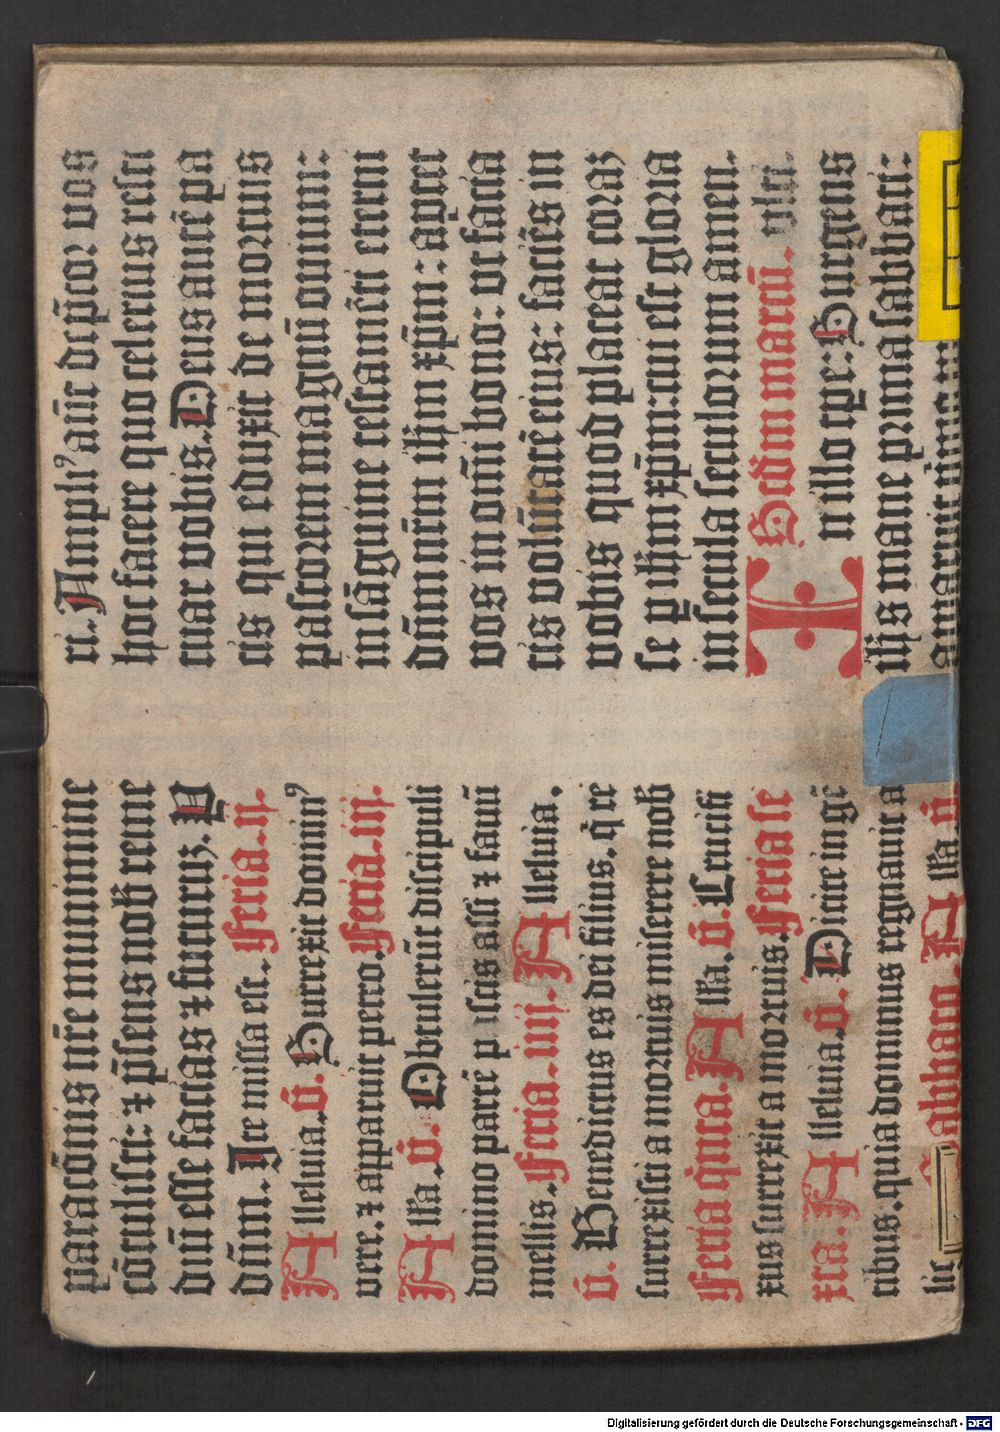 paracōnis nr̄e munimine
cōtulisti: ⁊ p̄sens nob̄ reme
diū esse facias ⁊ futuruz. P
dn̄m. Ite missa est. Feria. ij.
Alleluia. v̄. Surrexit domin⁹
vere. ⁊ apparuit petro. Feria. iij.
Alla. v̄. Obtulerūt discipuli
domino partē piscis assi ⁊ fauū
mellis. Feria. iiij. Alleluia.
v̄. Benedictus es dei filius. q̇ re
surrexisti a mortuis miserere nob̄
Feria qͥnta. Alla. v̄. Crucifi
xus surrexit a mortuis. Feria se
xta. Alleluia. v̄. Dicite in gē
tibus. quia dominus regnauit a
lig
Sabbato. Alla. v̄.
ri. Ampli⁹ aūt dep̄cor vos
hoc facere quo celerius resti
tuar vobis. Deus autē pa
cis qui eduxit de mortuis
pastorem magnū ouium:
in sāguine testamēti eterni
dn̄m nr̄m ih̄m xp̄m: aptet
vos in om̄i bono: vt facia
tis volūtatē eius: faciēs in
vobis quod placeat coraz
se ꝑ ih̄m xp̄m: cui est gloria
in secula seculorum amen.
Scd̄m marcū. vlti.
In illo tp̄e: Surgens
ih̄s mane prima sabbati:
Digitalisierung gefördert durch die Deutsche Forschungsgemeinschaft - DFG